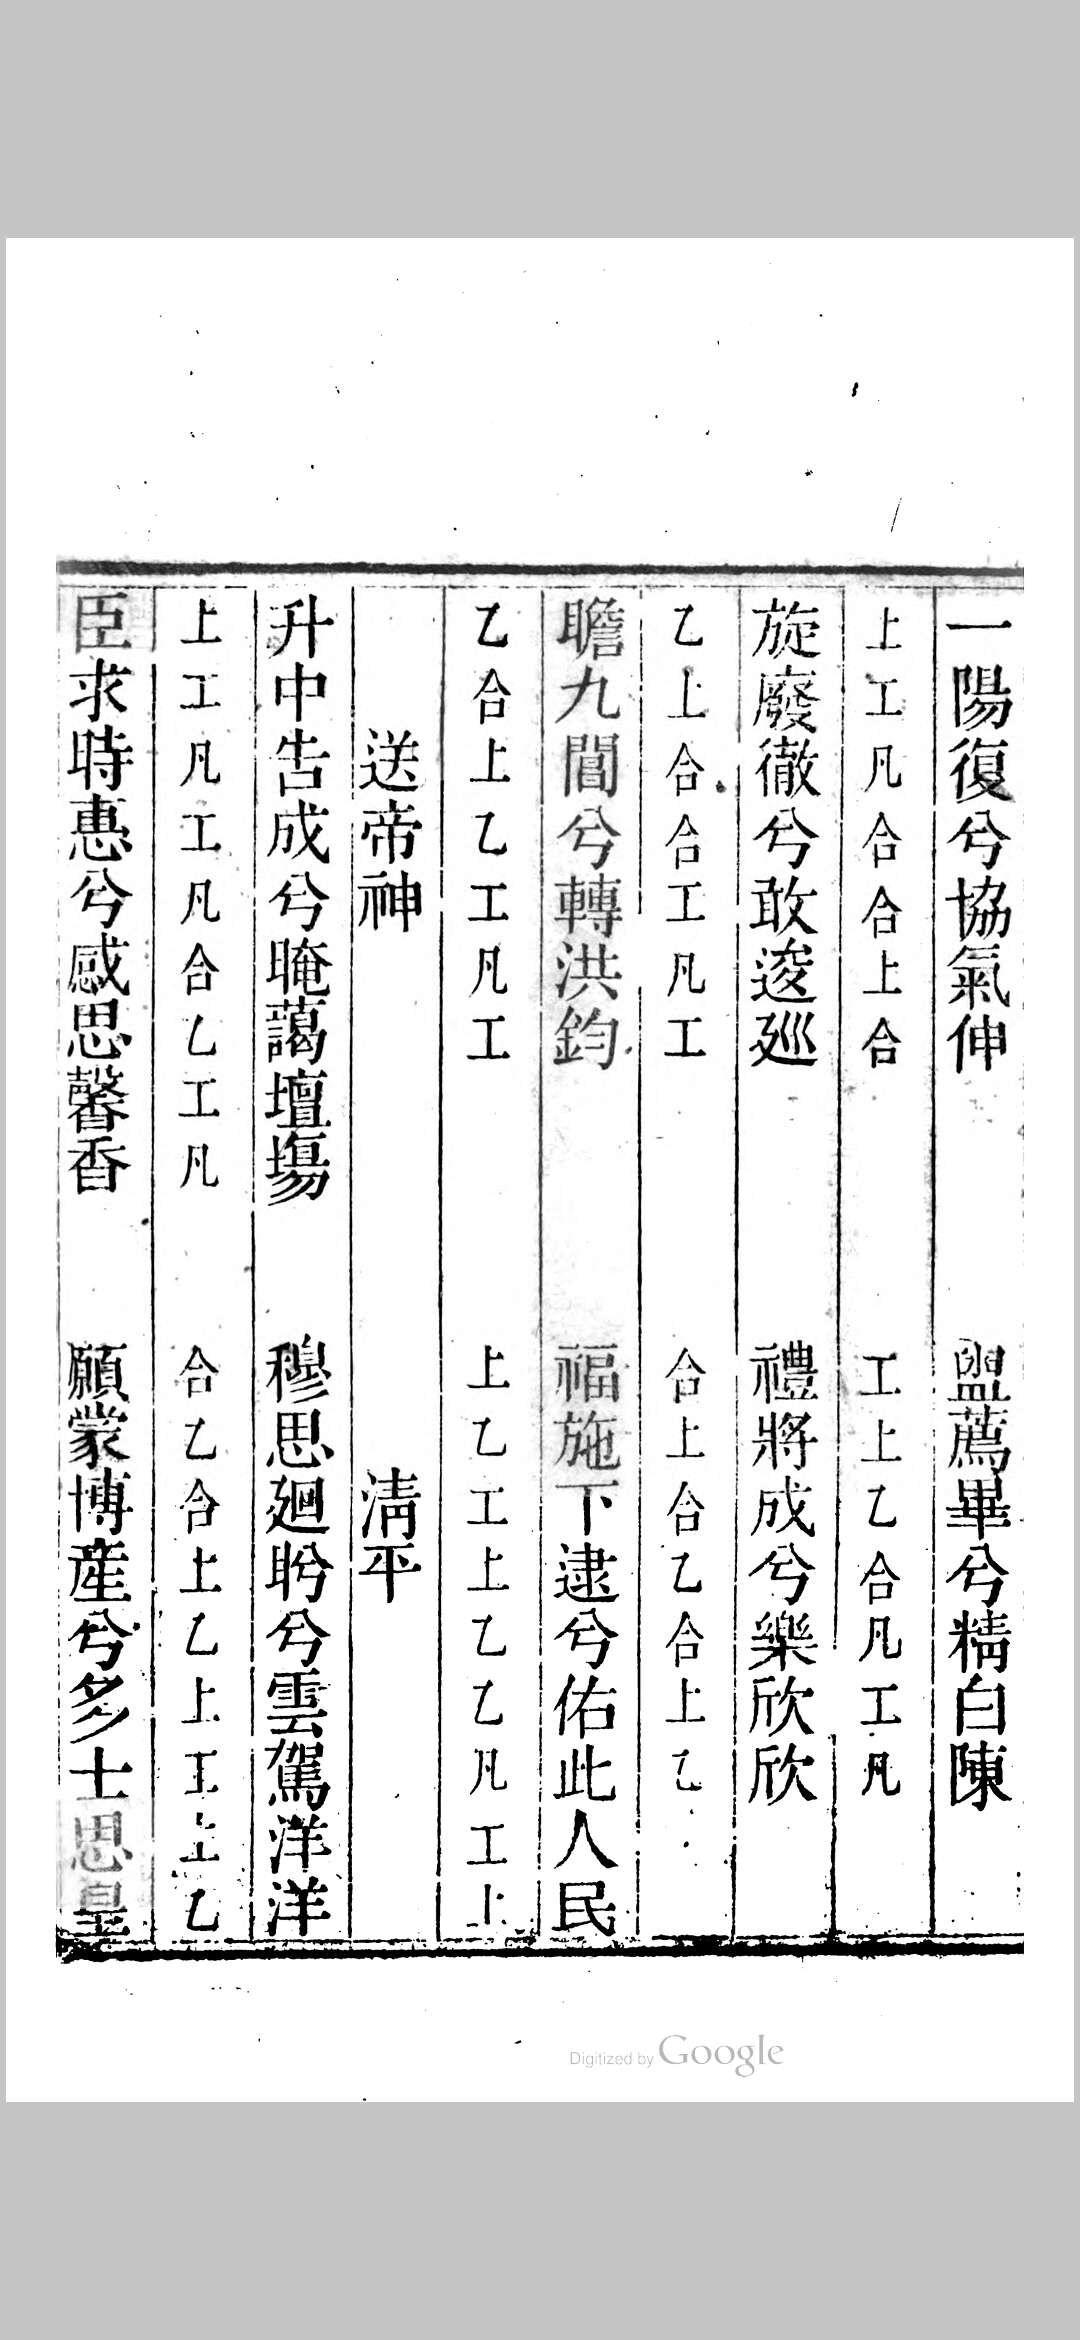 一陽復兮協氣伸 盥薦畢兮精白陳
上工凡合合上合 工上乙合凡工凡
旋廢徹兮敢逡廵 禮將成兮樂欣欣
乙上合合工凡工 合上合乙合上乙
瞻九閶兮轉洪鈞 福施下逮兮佑此人民
乙合上乙工凡工 上乙工上乙乙凡工上
送帝神 清平
升中告成兮晻藹壇場 穆思廻盻兮雲駕洋洋
上工凡工凡合乙工凡 合乙合上乙上工上乙
臣求時惠兮感思馨香 願蒙博産兮多士思皇
Digitized by Google